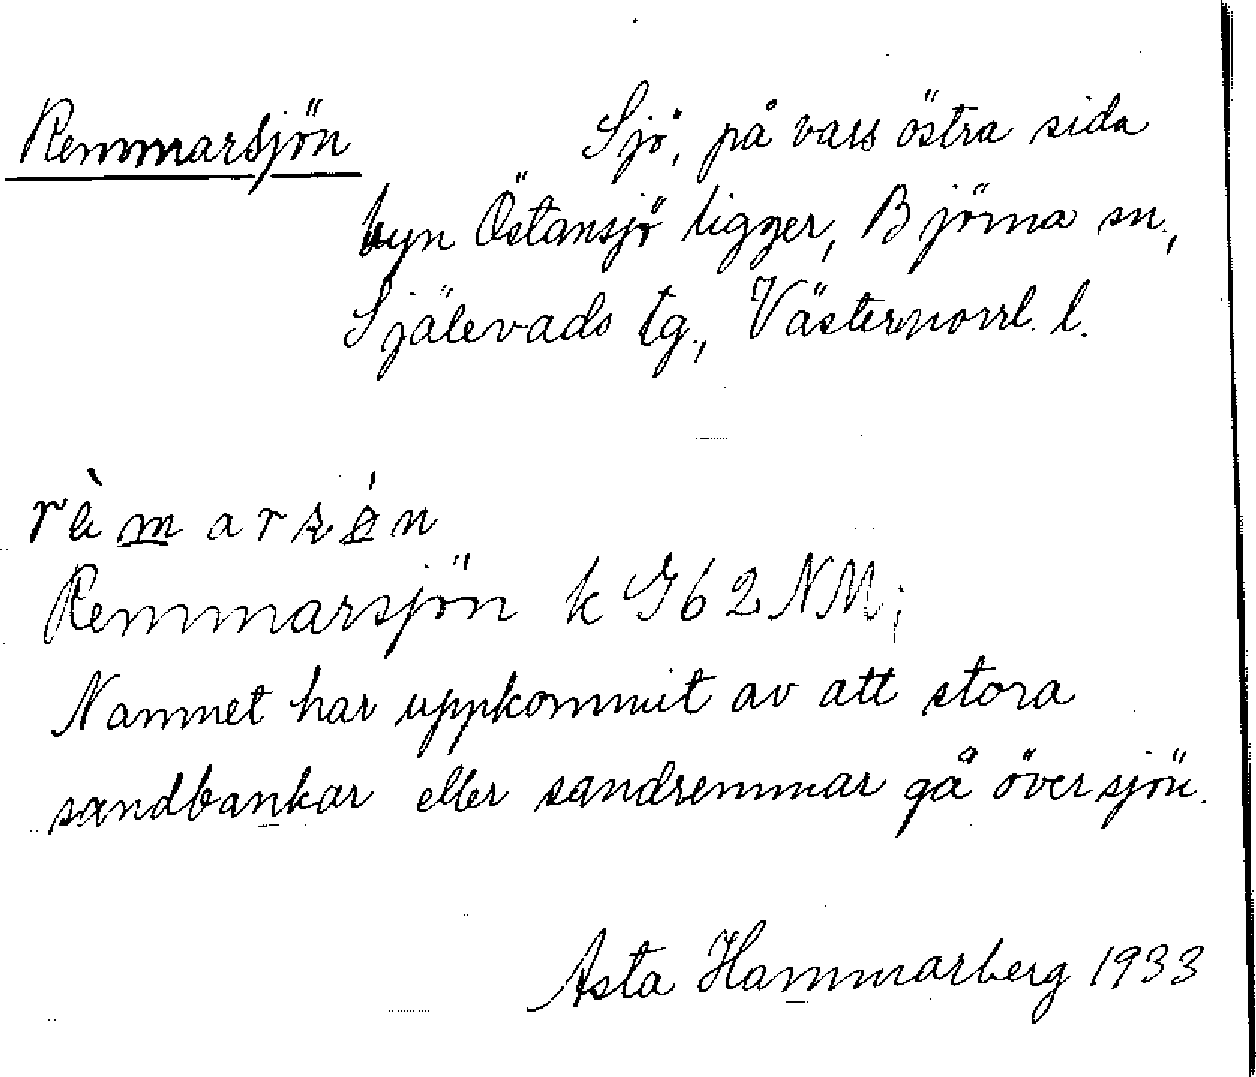 Remmarsjön Sjö, på vars östra sida
byn Östansjö ligger, Björna sn,
Själevads tg., Västernorrl. l.
Remmarsjön k G62NM;
Namnet har uppkommit av att stora
sandbankar eller sandremmar gå över sjön.
Asta Hammarberg 1933